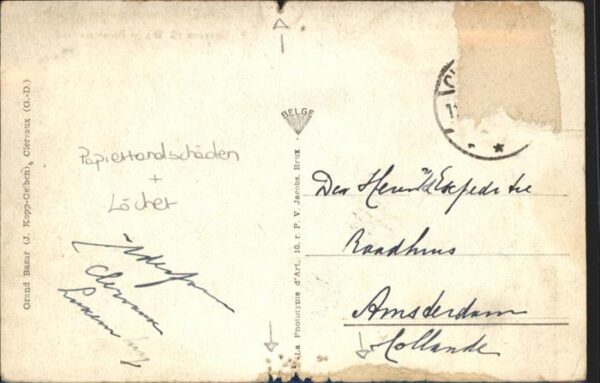 Grand Bazar (J. Kopp-Geiben), Clervaux (G.-D.)
Papierrandschäden
+
Löcher
Clervaux
Luxemburg
BELGE
La Phototypie d'Art, 10, r. P. V. Jacobs, Brux.
Den Heer
Raadhuis
Amsterdam
Hollande